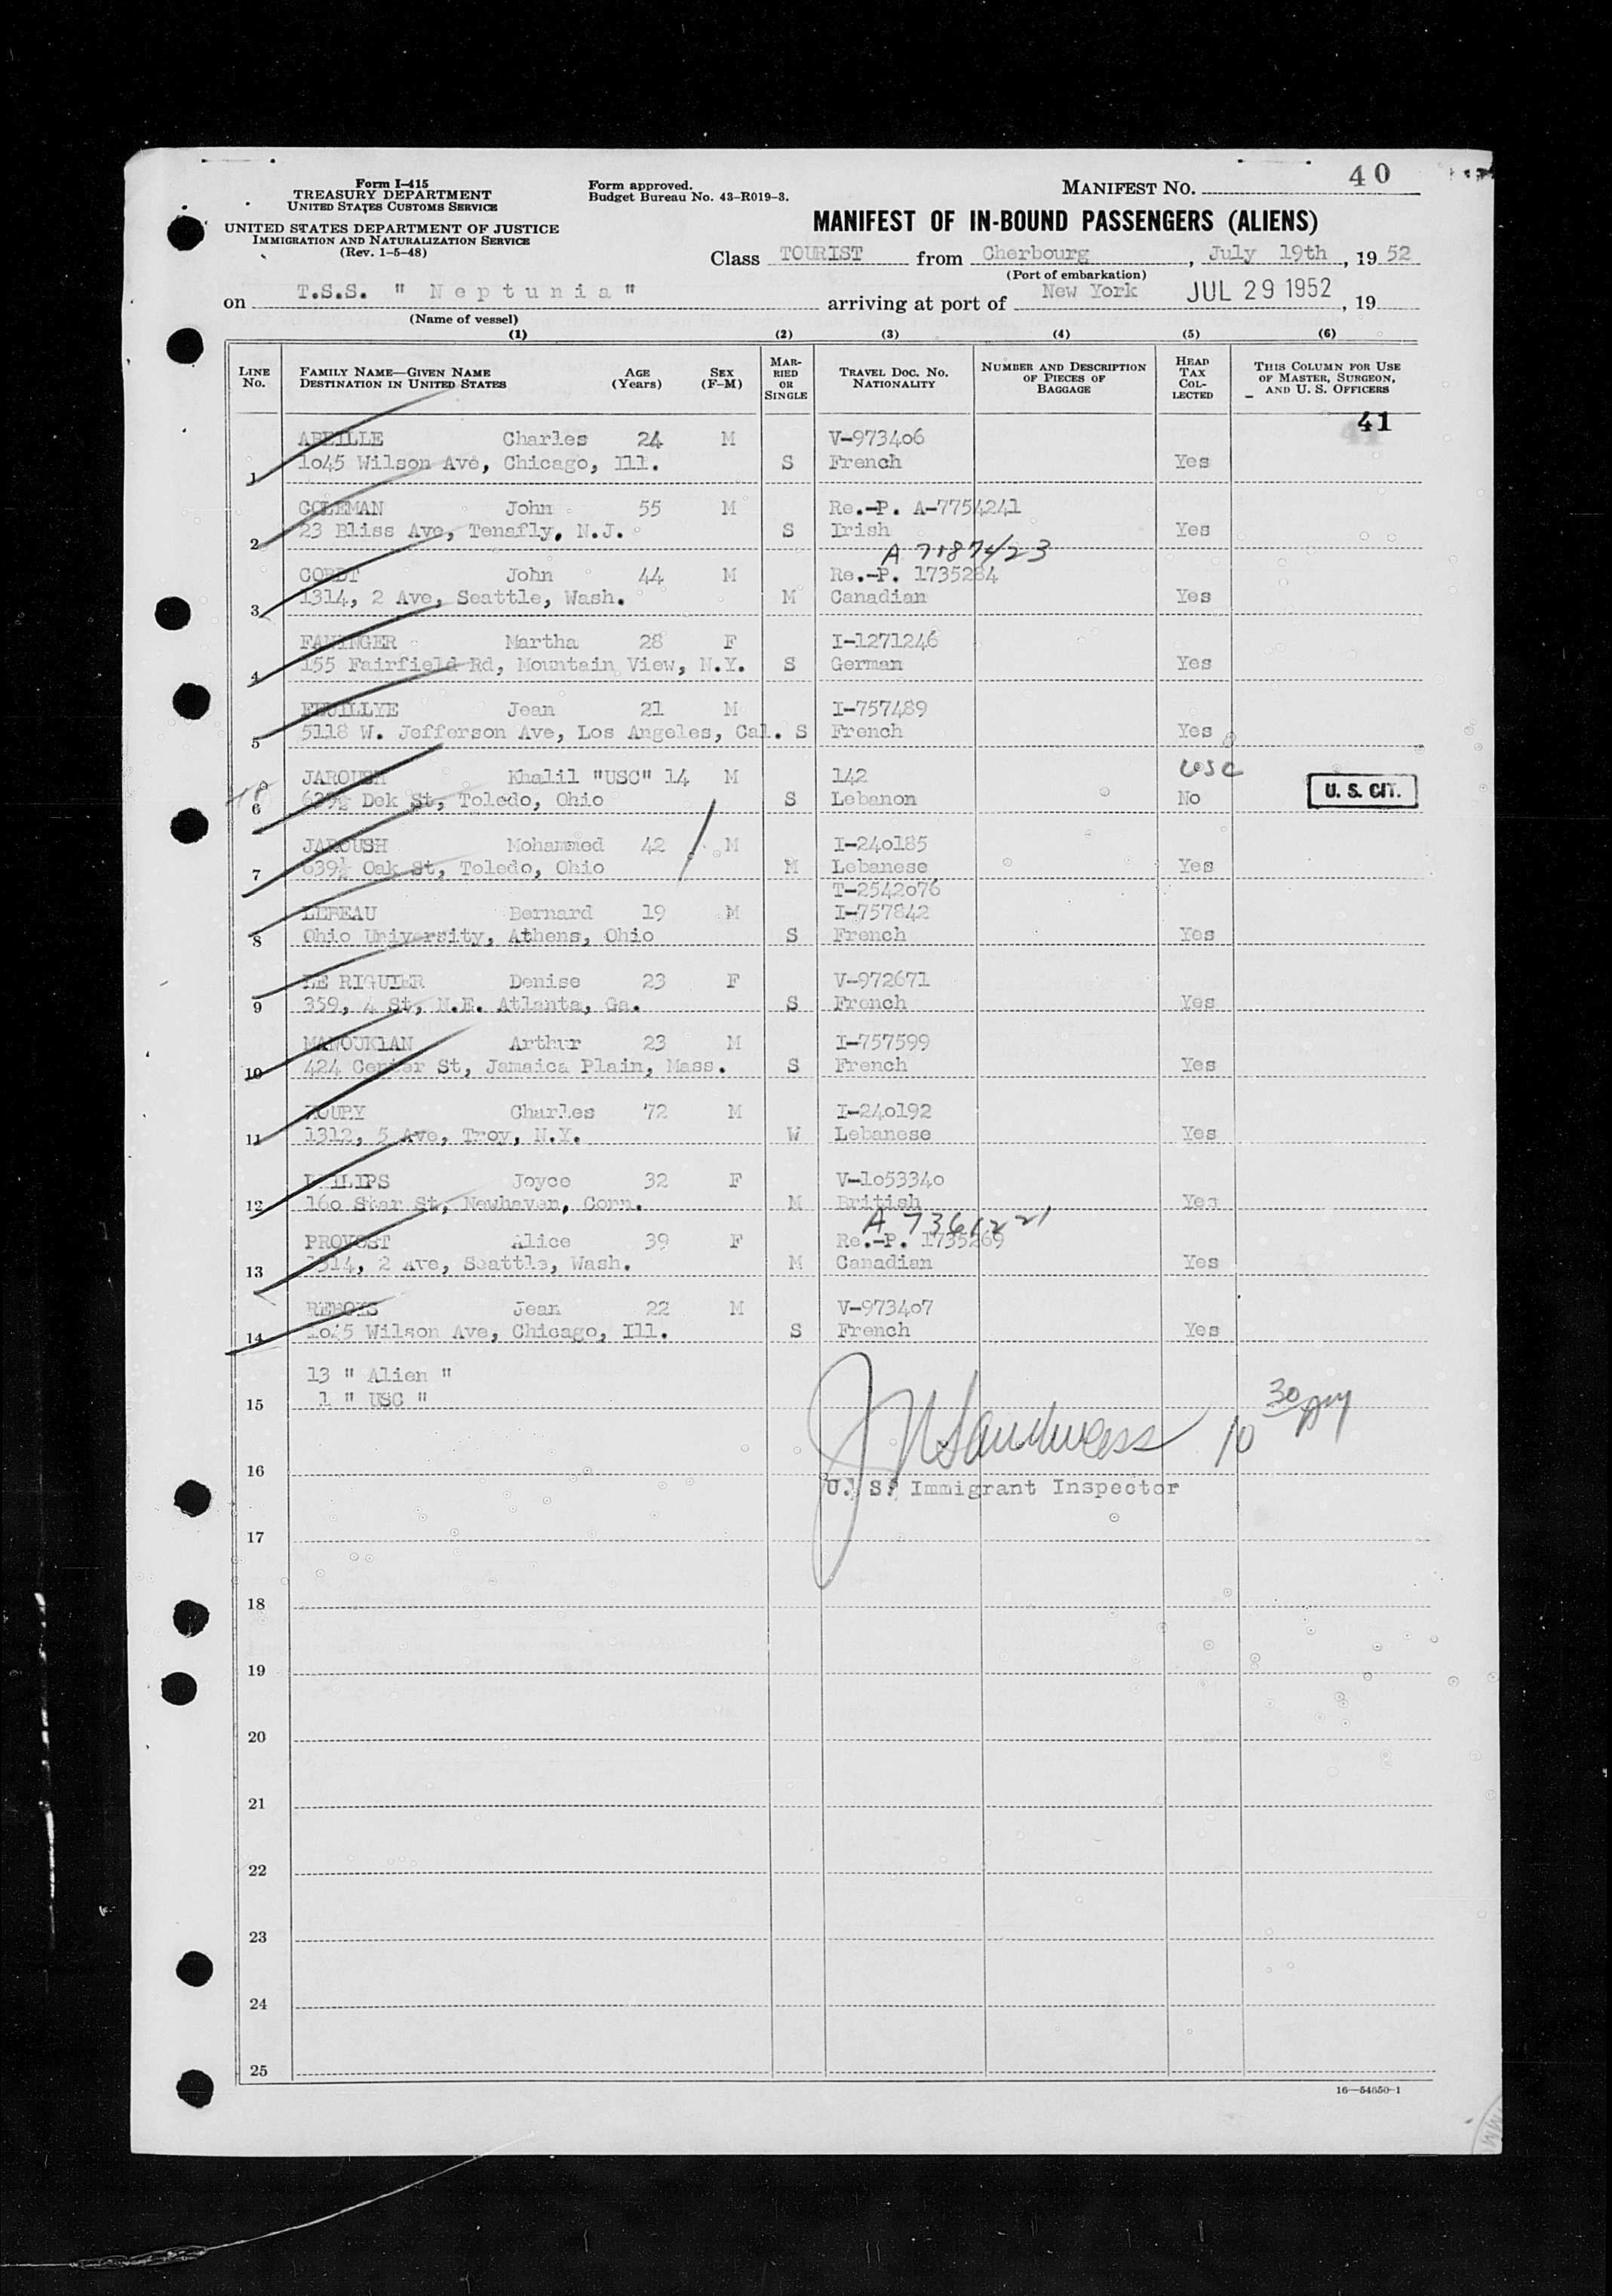 Form I-415
TREASURY DEPARTMENT
UNITED STATES CUSTOMS SERVICE
UNITED STATES DEPARTMENT OF JUSTICE
IMMIGRATION AND NATURALIZATION SERVICE
(Rev. 1-5-48)
Form approved.
Budget Bureau No. 43-R019-3.
MANIFEST NO. 40
MANIFEST OF IN-BOUND PASSENGERS (ALIENS)
Class TOURIST from Cherbourg, July 19th, 19 52
(Port of embarkation)
on T.S.S. " Neptunia " arriving at port of New York JUL 29 1952, 19
(Name of vessel)
(1) (2) (3) (4) (5) (6)
LINE No. FAMILY NAME—GIVEN NAME DESTINATION IN UNITED STATES AGE (Years) SEX (F-M) MARRIED OR SINGLE TRAVEL DOC. NO. NATIONALITY NUMBER AND DESCRIPTION OF PIECES OF BAGGAGE HEAD TAX COLLECTED THIS COLUMN FOR USE OF MASTER, SURGEON, AND U. S. OFFICERS
41
ABEILLE Charles 24 M V-973406
1 1o45 Wilson Ave, Chicago, Ill. S French Yes
COLEMAN John 55 M Re.-P. A-7754241
2 23 Bliss Ave, Tenafly, N.J. S Irish Yes
A 7187423
CORDT John 44 M Re.-P. 1735284
3 1314, 2 Ave, Seattle, Wash. M Canadian Yes
Martha 28 F I-1271246
4 155 Fairfield Rd, Mountain View, N.Y. S German Yes
FEUILLYE Jean 21 M I-757489
5 5118 W. Jefferson Ave, Los Angeles, Cal. S French Yes
JAROUSH Khalil "USC" 14 M 142 USC
6 639½ Dek St, Toledo, Ohio S Lebanon No U. S. CIT.
JAROUSH Mohammed 42 M I-24o185
7 639½ Oak St, Toledo, Ohio M Lebanese Yes
T-2542o76
LEBEAU Bernard 19 M I-757842
8 Ohio University, Athens, Ohio S French Yes
LE RIGUIER Denise 23 F V-972671
9 359, 4 St, N.E. Atlanta, Ga. S French Yes
MANOUKIAN Arthur 23 M I-757599
10 424 Center St, Jamaica Plain, Mass. S French Yes
Charles 72 M I-24o192
11 1312, 5 Ave, Troy, N.Y. W Lebanese Yes
PHILIPS Joyce 32 F V-1o5334o
12 16o Star St, Newhaven, Conn. M British Yes
A 7361221
PROVOST Alice 39 F Re.-P. 1735269
13 1314, 2 Ave, Seattle, Wash. M Canadian Yes
REBOYS Jean 22 M V-9734o7
14 1o45 Wilson Ave, Chicago, Ill. S French Yes
13 " Alien "
15 1 " USC "
10 30
16
U. S. Immigrant Inspector
17
18
19
20
21
22
23
24
25
16—54650-1